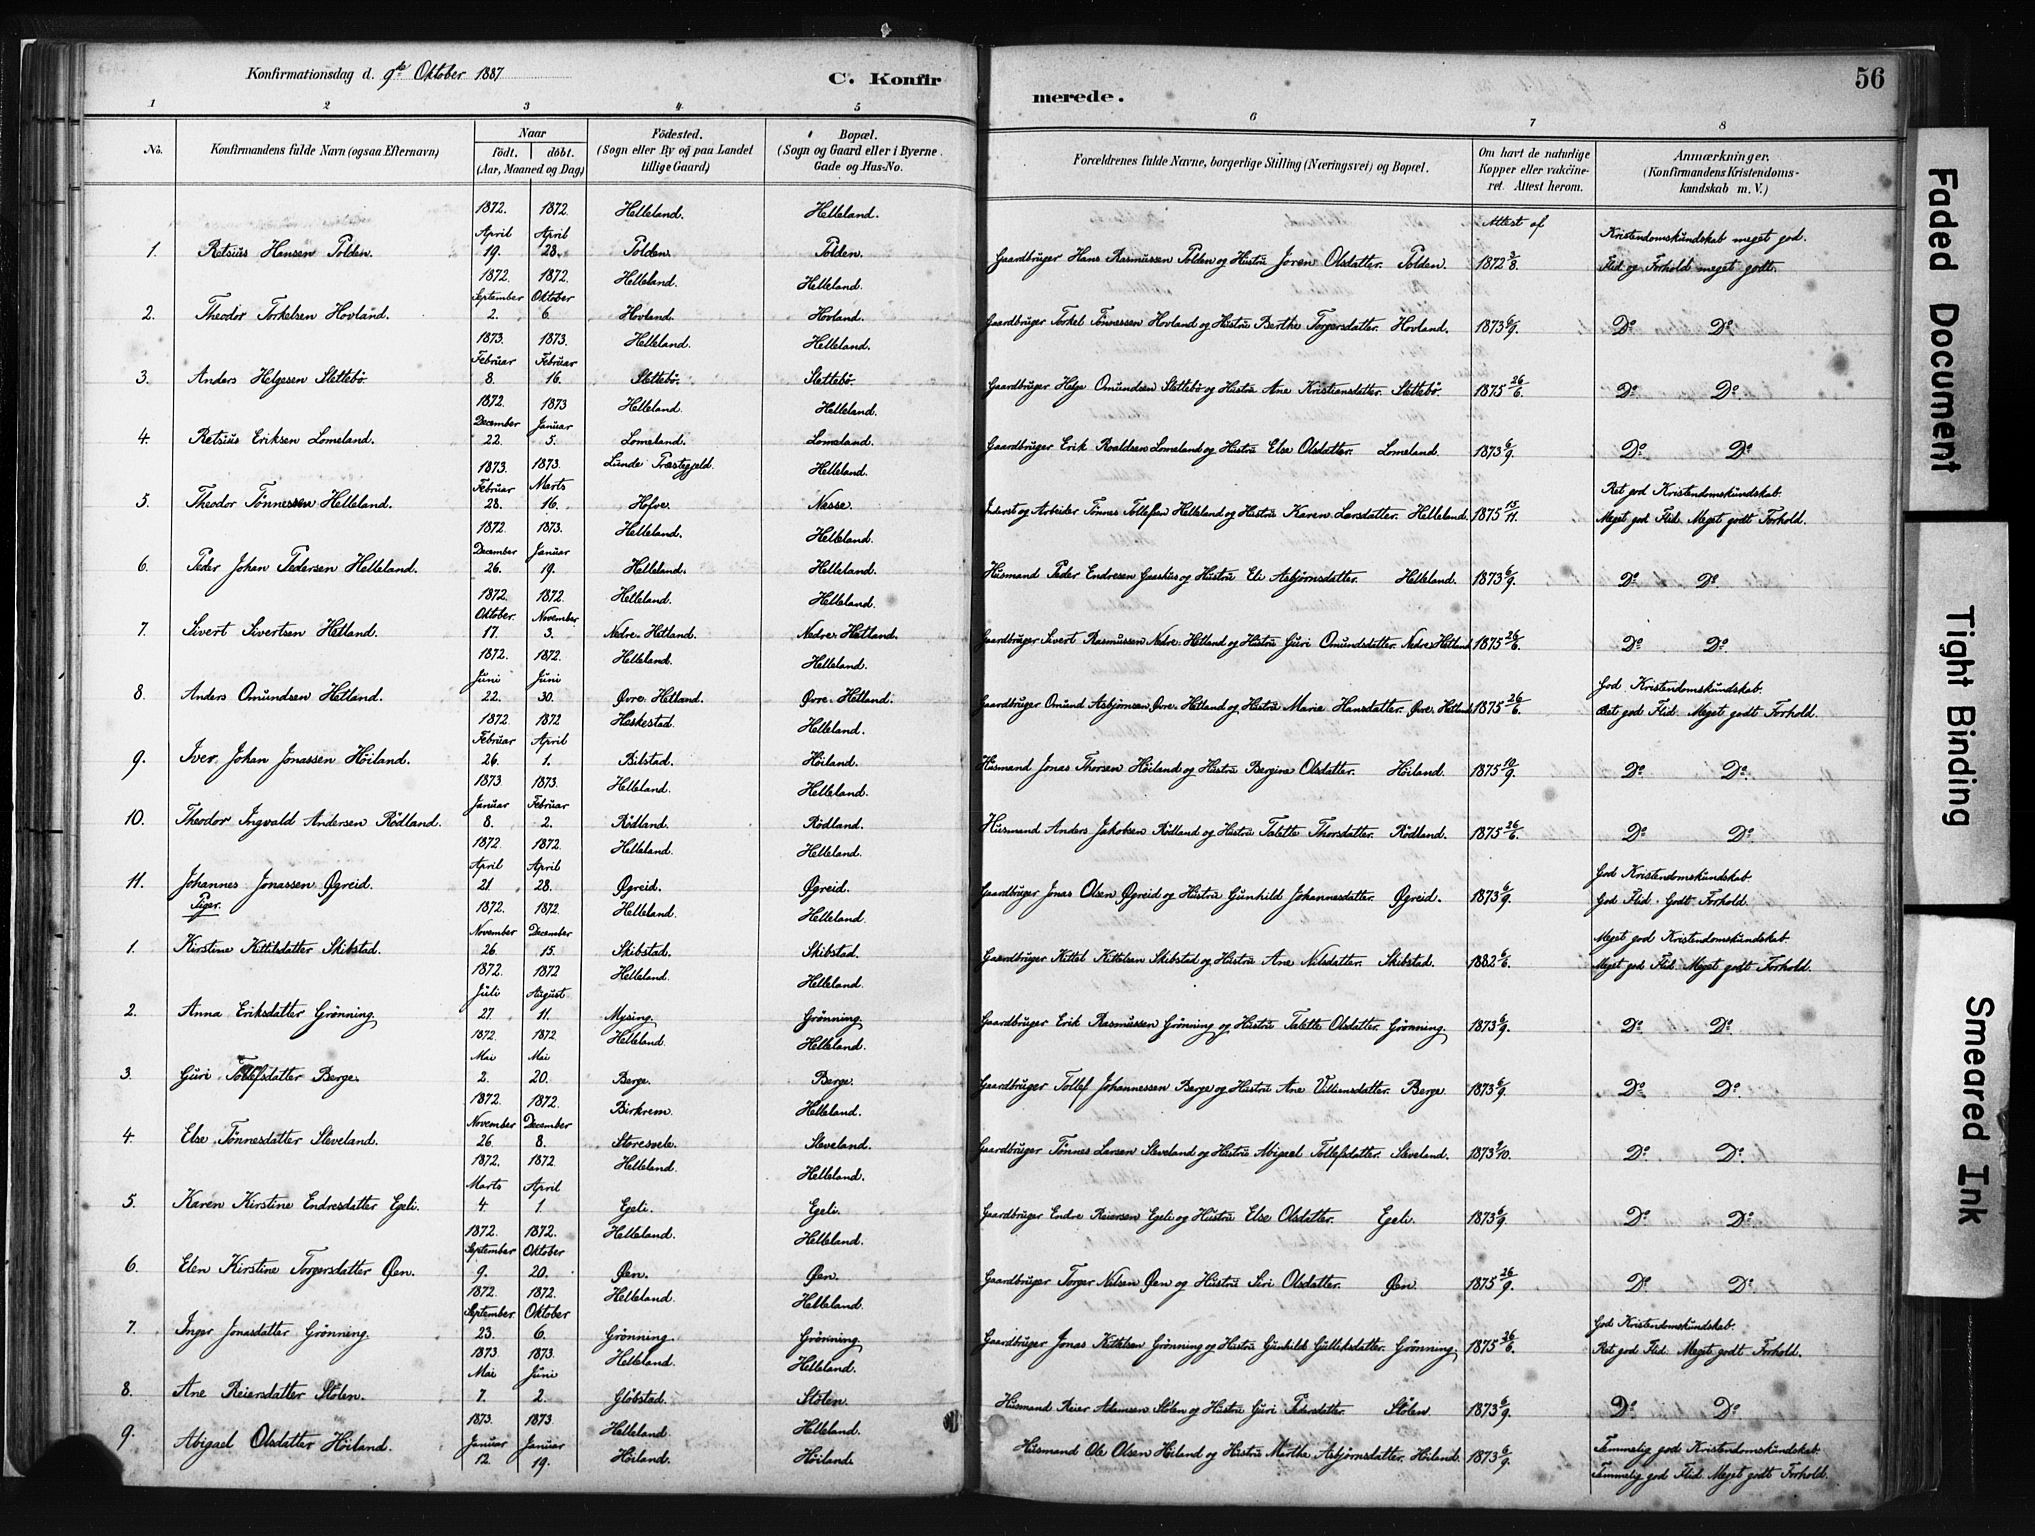 Konfirmationsdag d. 9de Oktober 1887
C. Konfir
merede.
56
1 2 3 4 5 6 7 8
No. Konfirmandens fulde Navn (ogsaa Efternavn) Naar født. døbt. (Aar, Maaned og Dag) Födested. (Sogn eller By og paa Landet tillige Gaard) Bopæl. (Sogn og Gaard eller i Byerne Gade og Hus-No. Forældrenes fulde Navne, borgerlige Stilling (Næringsvei) og Bopæl. Om havt de naturlige Kopper eller vakcineret. Attest herom. Anmærkninger. (Konfirmandens Kristendomskundskab m. V.)
1872. 1872. Helleland. Helleland. Attest af Kristendomskundskab meget god.
April April
1. Retsius Hansen Polden. 19. 28. Polden. Polden. Gaardbruger Hans Rasmussen Polden og Hustru Joren Olsdatter. Polden. 1872 3/8. Flid og Forhold meget godt.
1872. 1872. Helleland. Helleland.
September Oktober
2. Theodor Torkelsen Hovland. 2. 6. Hovland. Hovland. Gaardbruger Torkel Tønnessen Hovland og Hustru Berthe Torgersdatter. Hovland. 1873 6/9. Do Do
1873. 1873. Helleland. Helleland.
Februar Februar
3. Anders Helgesen Slettebø. 8. 16. Slettebø. Slettebø. Gaardbruger Helge Omundsen Slettebø og Hustru Ane Kristiansdatter. Slettebø. 1875 26/6. Do Do
1872. 1873 Helleland. Helleland.
December Januar
4. Retsius Eriksen Lomeland. 22. 5. Lomeland. Lomeland. Gaardbruger Erik Roaldsen Lomeland og Hustru Else Olsdatter. Lomeland. 1873 6/9. Do Do
1873. 1873. Lunde Præstegjeld. Helleland.
Februar Marts Ret god Kristendomskundskab.
5. Theodor Tønnessen Helleland. 28. 16. Hofve. Nesse. Inderst og Arbeider Tønnes Tollefsen Helleland og Hustru Karen Larsdatter. Helleland. 1875 15/11. Meget god Flid. Meget godt Forhold.
1872. 1873. Helleland. Helleland.
December Januar
6. Peder Johan Pedersen Helleland. 26. 19. Helleland. Helleland. Husmand Peder Endresen Gaashus og Hustru Eli Asbjørnsdatter. Helleland. 1873 6/9. Do Do
1872. 1872. Helleland. Helleland.
Oktober. November
7. Sivert Sivertsen Hetland. 17. 3. Nedre. Hetland. Nedre. Hetland. Gaardbruger Sivert Rasmussen Nedre. Hetland og Hustru Guri Omundsdatter. Nedre. Hetland 1875 26/6. Do Do
1872. 1872. Helleland. Helleland.
Juni Juni God Kristendomskundskab.
8. Anders Omundsen Hetland. 22. 30. Øvre. Hetland. Øvre. Hetland. Gaardbruger Omund Asbjørnsen Øvre. Hetland og Hustru Maria Hansdatter. Øvre. Hetland 1875 26/6. Ret god Flid. Meget godt Forhold.
1872 1872 Heskestad. Helleland.
Februar April
9. Iver Johan Jonassen Höiland. 26. 1. Bilstad. Höiland. Husmand Jonas Thorsen Höiland og Hustru Bergine Olsdatter. Höiland. 1875 10/9. Do Do
1873 1873. Helleland. Helleland.
Januar Februar
10. Theodor Ingvald Andersen Rödland. 8. 2. Rödland. Rödland. Husmand Anders Jakobsen Rödland og Hustru Talette Thorsdatter. Rödland. 1875 26/6. Do Do
1872. 1872. Helleland. Helleland.
April April God Kristendomskundskab.
11. Johannes Jonassen Øgreid. 21 28. Øgreid. Øgreid. Gaardbruger Jonas Olsen Øgreid og Hustru Gunhild Johannesdatter. Øgreid. 1873 6/9. God Flid. Godt Forhold.
Piger.
1872. 1872. Helleland. Helleland.
November December Meget god Kristendomskundskab.
1. Kirstine Kittilsdatter Skibstad. 26. 15. Skibstad. Skibstad. Gaardbruger Kittel Kittelsen Skibstad og Hustru Ane Nilsdatter. Skibstad. 1882 6/6. Meget god Flid. Meget godt Forhold.
1872. 1872 Helleland. Helleland.
Juli August
2. Anna Eriksdatter Grønning. 27 11. Mysing. Grønning. Gaardbruger Erik Rasmussen Grønning og Hustru Talette Olsdatter. Grønning. 1873 6/9. Do Do
1872. 1872 Helleland. Helleland.
Mai Mai
3. Guri Tollefsdatter Berge. 2. 20. Berge. Berge. Gaardbruger Tollef Johannessen Berge og Hustru Ane Villiensdatter. Berge 1873 6/9. Do Do
1872. 1872. Birkrem. Helleland.
November December
4. Else Tønnesdatter Sleveland. 26 8. Storesvele. Sleveland. Gaardbruger Tønnes Larsen Sleveland og Hustru Abigael Tollefsdatter. Sleveland. 1873 9/10. Do Do
1872. 1872 Helleland. Helleland.
Marts April
5. Karen Kirstine Endresdatter Egeli. 4 1. Egeli. Egeli. Gaardbruger Endre Reiersen Egeli og Hustru Else Olsdatter. Egeli. 1873 6/9. Do Do
1872. 1872. Helleland. Helleland.
September Oktober
6. Elen Kirstine Torgersdatter Øen. 9. 20. Øen. Øen. Gaardbruger Torger Nilsen Øen og Hustru Siri Olsdatter. Øen. 1875 26/9. Do Do
1872. 1872. Helleland. Helleland.
September Oktober God Kristendomskundskab.
7. Inger Jonasdatter Grønning. 23. 6. Grønning. Grønning. Gaardbruger Jonas Kittelsen Grønning og Hustru Gunhild Gulliksdatter. Grønning. 1875 26/6. Ret god Flid. Meget godt Forhold.
1873 1873. Helleland. Helleland.
Mai Juni
8. Ane Reiersdatter Stølen. 7. 2. Gløbstad. Stølen. Husmand Reier Adamsen Stølen og Hustru Guri Pedersdatter. Stølen 1873 6/9. Do Do
1873. 1873. Helleland. Helleland.
9. Abigael Olsdatter Höiland. Januar Januar Höiland. Höiland. Husmand Ole Olsen Höiland og Hustru Marthe Asbjørnsdatter. Höiland. 1873 6/9. Temmelig god Kristendomskundskab.
12. 19. Temmelig god Flid. Meget godt Forhold.
Faded Document
Tight Binding
Smeared Ink